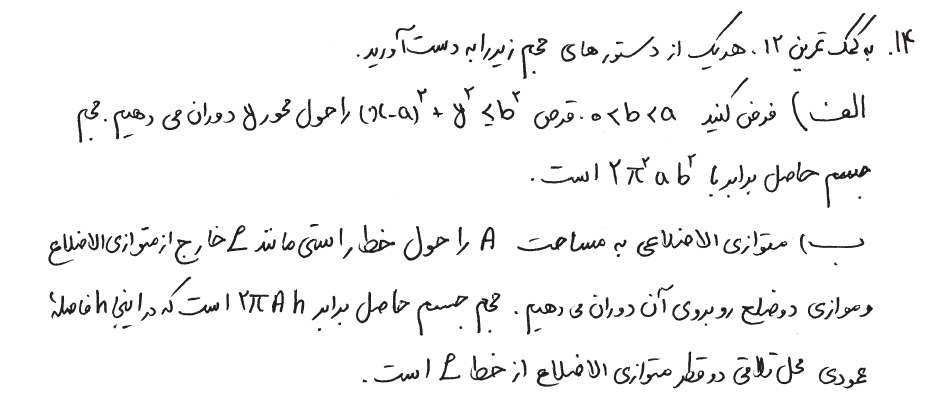 ۱۴. به کمک تمرین ۱۲، هریک از دستورهای حجم زیر را به دست آورید.
الف) فرض کنید 0<b<a. قرص (x-a)^۲ + y^۲ ≤ b^۲ را حول محور y دوران می دهیم. حجم
جسم حاصل برابر با ۲π^۲ab^۲ است.
ب) متوازی الاضلاعی به مساحت A را حول خط راستی مانند L خارج از متوازی الاضلاع
و موازی دو ضلع روبروی آن دوران می دهیم. حجم جسم حاصل برابر ۲πAh است که در اینجا h فاصلهٔ
عمودی محل تلاقی دو قطر متوازی الاضلاع از خط L است.